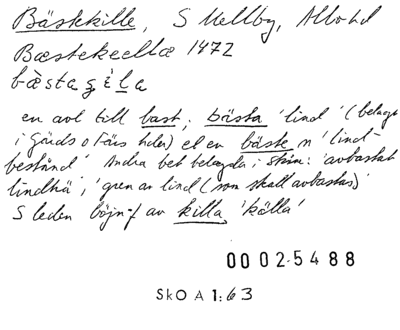 Bästekille, S Mellby, Albo hd
Bæstekeellæ 1472
bæ̀sta ʒ i l a
en avl till bast; bästa 'lind' (belagt
i Gärds o Färs hder) el en bäste n 'lind-
bestånd' Andra bet belagda i Skåne: 'avbastat
lindträ', 'gren av lind (som skall avbastas)'
S leden böjn-f av killa 'källa'
0002-5488
SkO A 1:63